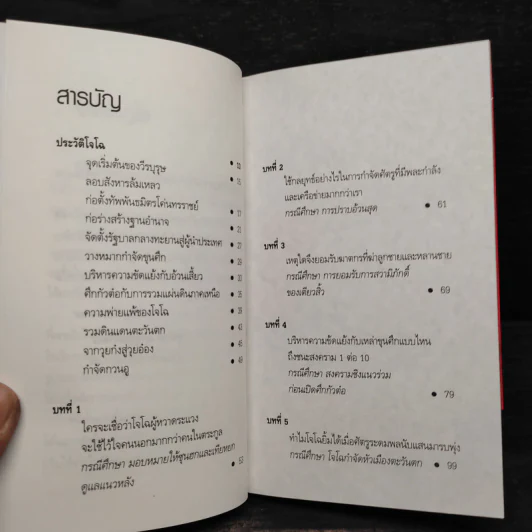 สารบัญ
ประวัติโจโฉ
จุดเริ่มต้นของวีรบุรุษ •
ลอบสังหารล้มเหลว •
ก่อตั้งทัพพันธมิตรโค่นทรราชย์ •
ก่อร่างสร้างฐานอำนาจ •
จัดตั้งรัฐบาลกลางทะยานสู่ผู้นำประเทศ •
วางหมากกำจัดขุนศึก •
บริหารความขัดแย้งกับอ้วนเสี้ยว •
ศึกกัวต่อกับการรวมแผ่นดินภาคเหนือ •
ความพ่ายแพ้ของโจโฉ •
รวมดินแดนตะวันตก •
จากวุยก๋งสู่วุยอ๋อง •
กำจัดกวนอู •
บทที่ 1
ใครจะเชื่อว่าโจโฉผู้หวาดระแวง
จะใช้ไว้ใจคนนอกมากกว่าคนในตระกูล
กรณีศึกษา มอบหมายให้ซุนฮกและเทียหยก
ดูแลแนวหลัง •
บทที่ 2
ใช้กลยุทธ์อย่างไรในการกำจัดศัตรูที่มีพละกำลัง
และเครือข่ายมากกว่าเรา
กรณีศึกษา การปราบอ้วนสุด • 61
บทที่ 3
เหตุใดจึงยอมรับฆาตกรที่ฆ่าลูกชายและหลานชาย
กรณีศึกษา การยอมรับการสวามิภักดิ์
ของเตียวสิ้ว • 69
บทที่ 4
บริหารความขัดแย้งกับเหล่าขุนศึกแบบไหน
ถึงชนะสงคราม 1 ต่อ 10
กรณีศึกษา สงครามชิงแนวร่วม
ก่อนเปิดศึกกัวต่อ • 79
บทที่ 5
ทำไมโจโฉยิ้มได้เมื่อศัตรูระดมพลนับแสนมารบพุ่ง
กรณีศึกษา โจโฉกำจัดหัวเมืองตะวันตก • 99